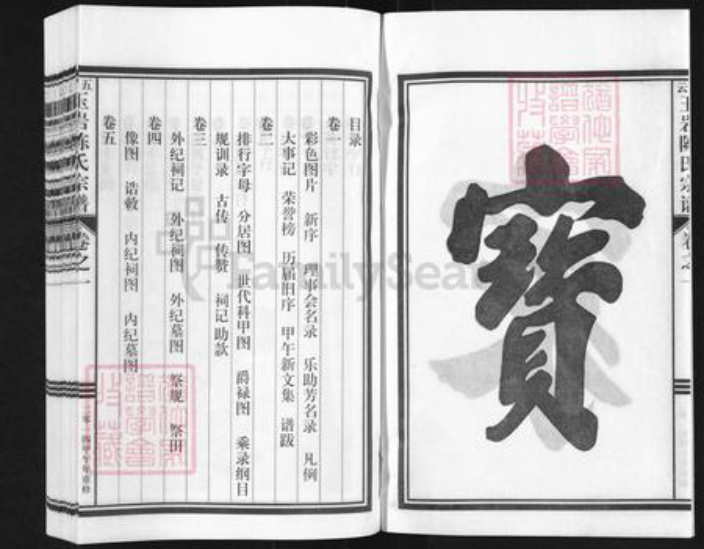 寶
云
玉岩陈氏宗谱
卷之一
目录
卷一
彩色图片 新序 理事会名录 乐助芳名录 凡例
大事记 荣誉榜 历届旧序 甲午新文集 谱跋
卷二
排行字母 分居图 世代科甲图 爵禄图 乘录纲目
规训录 古传 传赞 祠记助款
卷三
外纪祠记 外纪祠图 外纪墓图 祭规 祭田
卷四
像图 诰敕 内纪祠图 内纪墓图
卷五
五
玉岩陈氏宗谱
卷之一
二零一四甲午年重修
FamilySearch